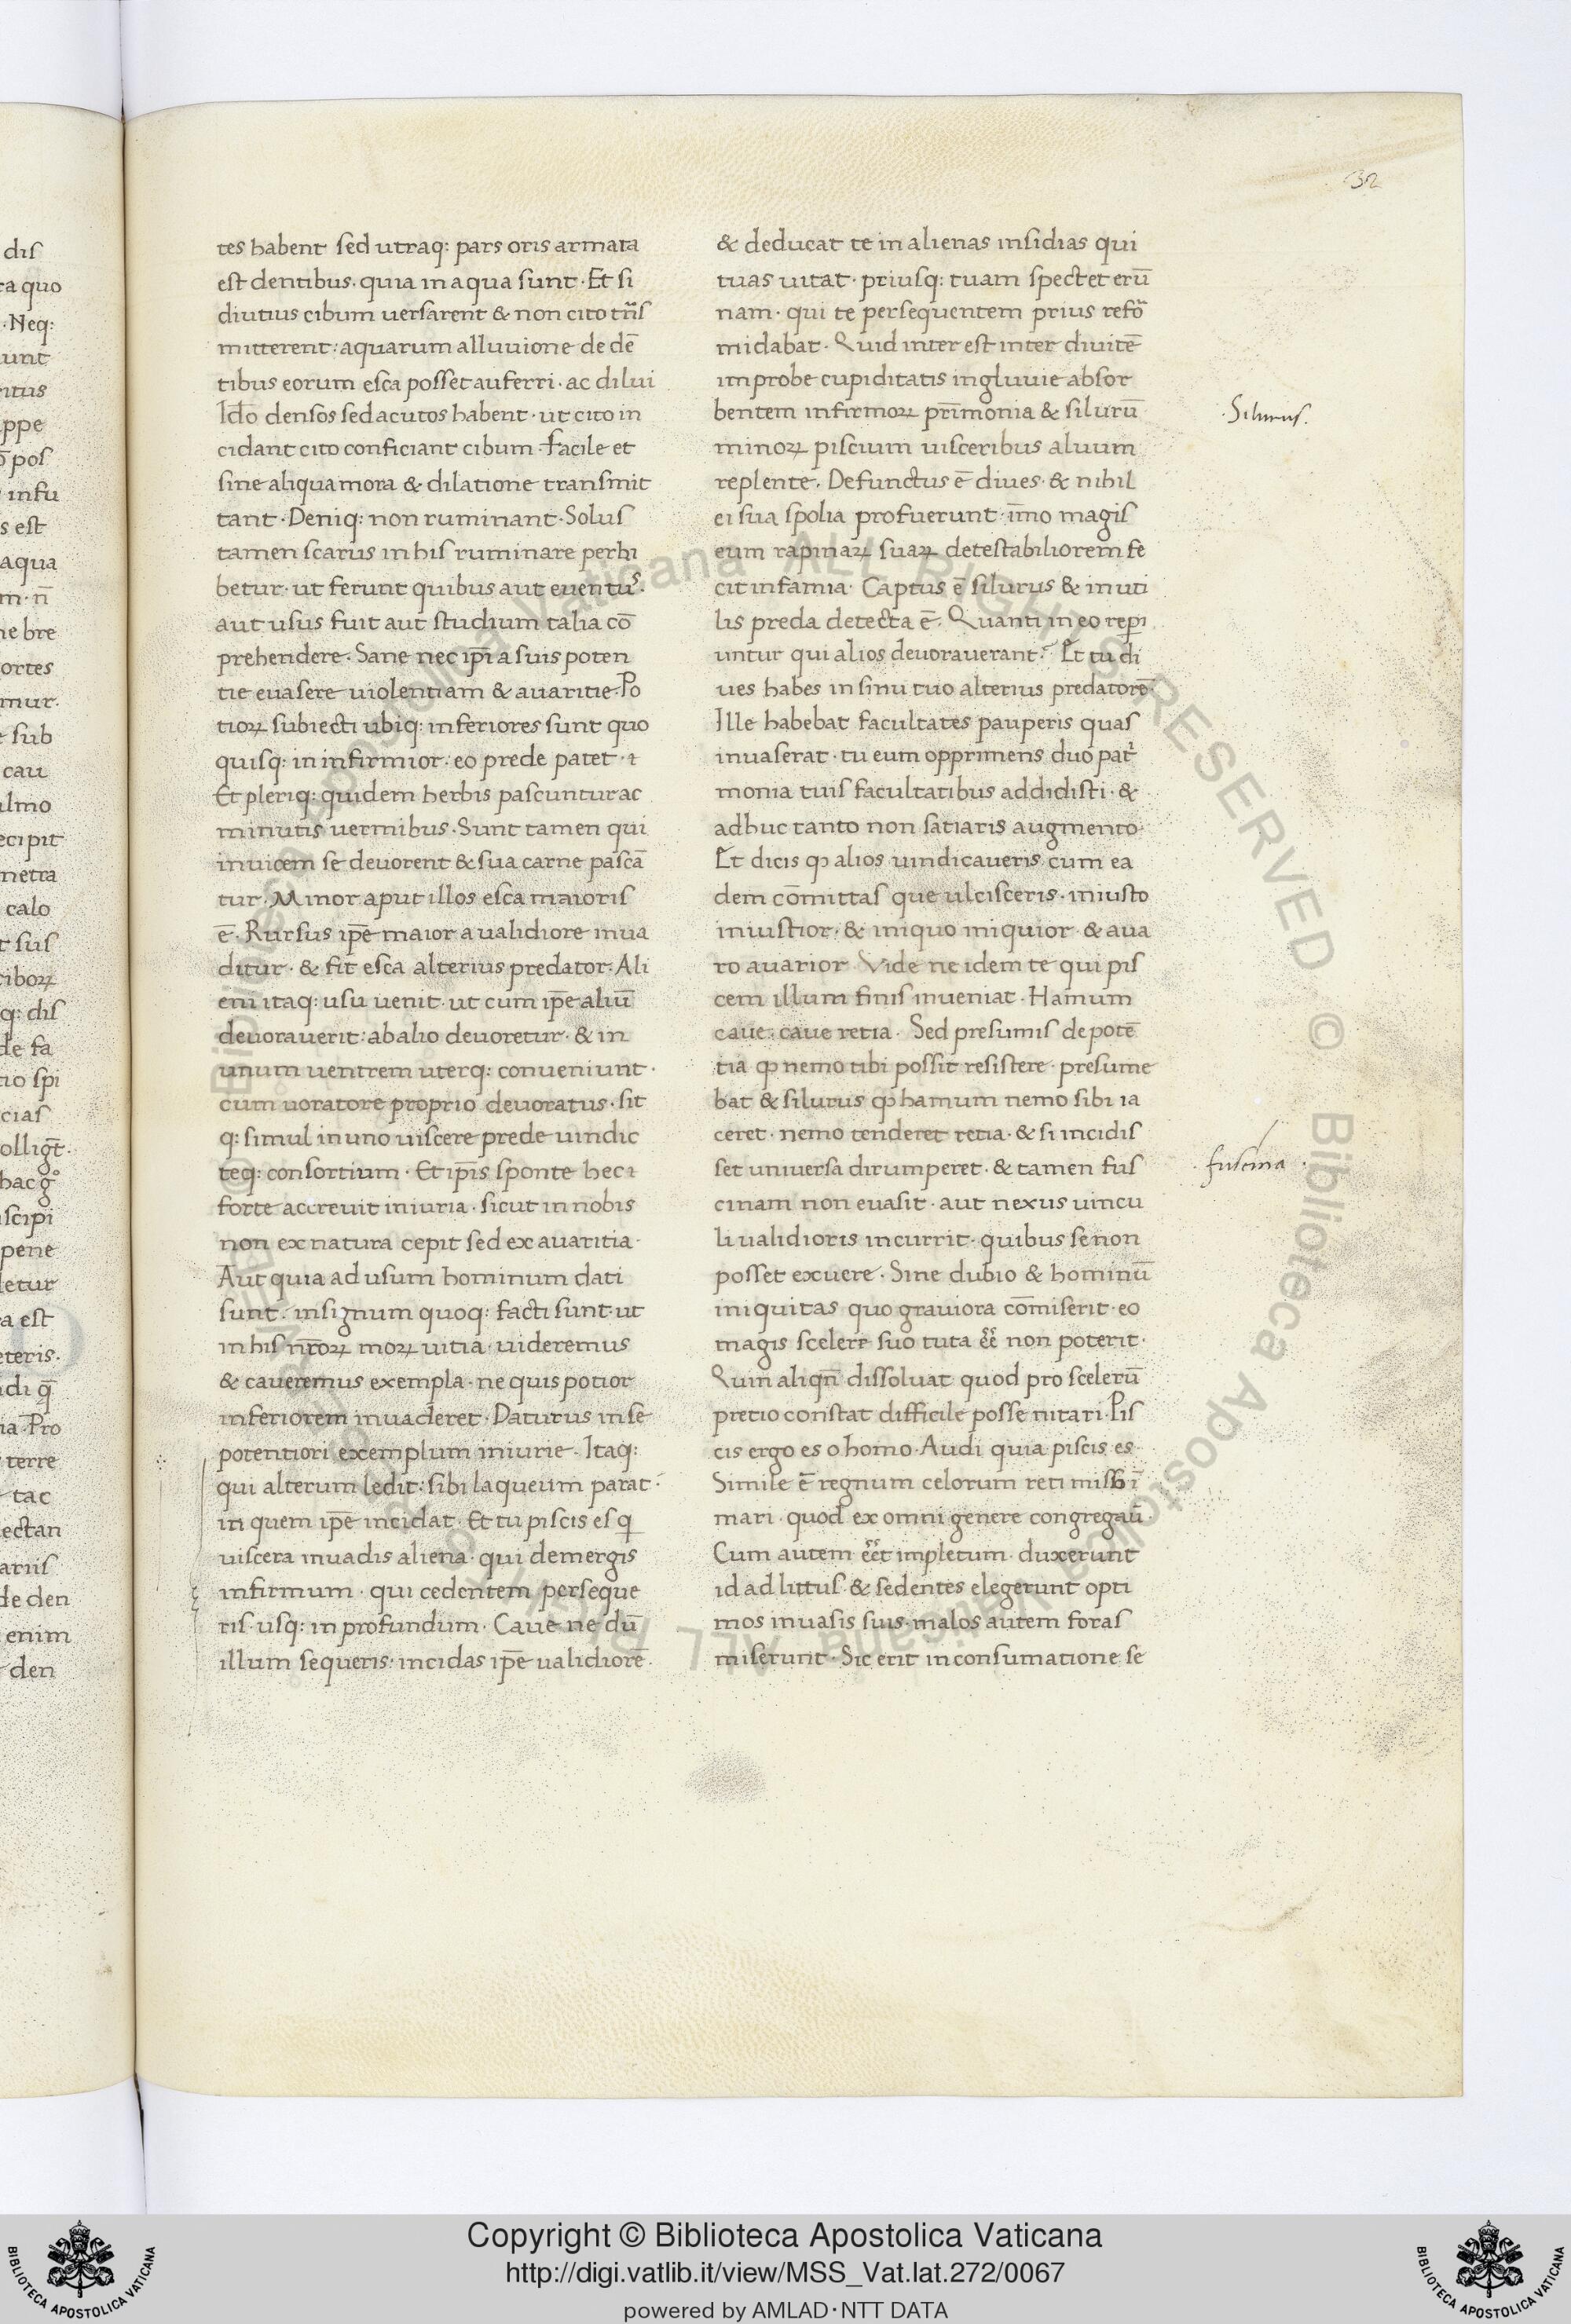 32
tes habent sed utraq: pars oris armata
est dentibus· quia in aqua sunt· Et si
diutius cibum uersarent & non cito trn̄s
mitterent: aquarum alluuione de dē
tibus eorum esca posset auferri· ac dilui
Ido̅ densos sed acutos habent· ut cito in
cidant cito conficiant cibum· facile et
sine aliqua mora & dilatione transmit
tant· Deniq: non ruminant· Solus
tamen scarus in his ruminare perhi
betur· ut ferunt quibus aut euentus·
aut usus fuit aut studium talia cō
prehendere· Sane nec ip̄i a suis poten
tie euasere uiolentiam & auaritie· Po
tioꝝ subiecti ubiq: inferiores sunt quo
quisq: in infirmior: eo prede patet·
Et pleriq: quidem herbis pascuntur ac
minutis uermibus· Sunt tamen qui
inuicem se deuorent & sua carne pascā
tur· Minor aput illos esca maioris
ē· Rursus ip̄e maior a ualidiore inua
ditur· & fit esca alterius predator· Ali
eni itaq: usu uenit· ut cum ip̄e aliū
deuorauerit: ab alio deuoretur· & in
unum uentrem uterq: conueniunt·
cum uoratore proprio deuoratus· sit
q: simul in uno uiscere prede uindic
teq: consortium· Et ip̄is sponte hec
forte accreuit iniuria· sicut in nobis
non ex natura cepit sed ex auaritia·
Aut quia ad usum hominum dati
sunt· insignum quoq: facti sunt· ut
in his nr̄oꝝ moꝝ uitia· uideremus
& caueremus exempla· ne quis potior
inferiorem inuaderet· Daturus in se
potentiori exemplum iniurie· Itaq:
qui alterum ledit: sibi laqueum parat·
in quem ip̄e incidat· Et tu piscis es q
uiscera inuadis aliena· qui demergis
infirmum· qui cedentem perseque
ris· usq: in profundum· Caue ne dū
illum sequeris: incidas ip̄e ualidiorē·
& deducat te in alienas insidias qui
tuas uitat· priusq: tuam spectet erū
nam· qui te persequentem prius refo
midabat· Quid inter est inter diuitē
improbe cupiditatis ingluuie absor
bentem infirmoꝝ prīmonia & silurū
minoꝝ piscium uisceribus aluum
replente· Defunctus ē diues· & nihil
ei sua spolia profuerunt· īmo magis
eum rapinaꝝ suaꝝ detestabiliorem fe
cit infamia· Captus ē silurus & inuti
lis preda detecta ē· Quanti in eo reꝑi
untur qui alios deuorauerant· Et tu di
ues habes in sinu tuo alterius predatorē·
Ille habebat facultates pauperis quas
inuaserat· tu eum opprimens duo pat
monia tuis facultatibus addidisti· &
adhuc tanto non satiaris augmento·
Et dicis ꝙ alios uindicaueris cum ea
dem cōmittas que ulcisceris· iniusto
iniustior· & iniquo iniquior· & aua
ro auarior· Vide ne idem te qui pis
cem illum finis inueniat· Hamum
caue: caue retia· Sed presumis de potē
tia ꝙ nemo tibi possit resistere· presume
bat & silurus ꝙ hamum nemo sibi ia
ceret· nemo tenderet retia· & si incidis
set uniuersa dirumperet· & tamen fus
cinam non euasit· aut nexus uincu
li ualidioris incurrit· quibus se non
posset exuere· Sine dubio & hominū
iniquitas quo grauiora cōmiserit· eo
magis scelere suo tuta ēē non poterit·
Quin aliqn̄ dissoluat quod pro scelerū
pretio constat difficile posse uitari· Pis
cis ergo es o homo· Audi quia piscis es·
Simile ē regnum celorum reti misso ī
mari· quod ex omni genere congregau̅·
Cum autem ēēt impletum· duxerunt
id ad littus· & sedentes elegerunt opti
mos in uasis suis· malos autem foras
miserunt· Sic erit in consumatione se
·Silurus·
fuscina·
Copyright © Biblioteca Apostolica Vaticana
http://digi.vatlib.it/view/MSS_Vat.lat.272/0067
powered by AMLAD·NTT DATA
BIBLIOTECA APOSTOLICA VATICANA
BIBLIOTECA APOSTOLICA VATICANA